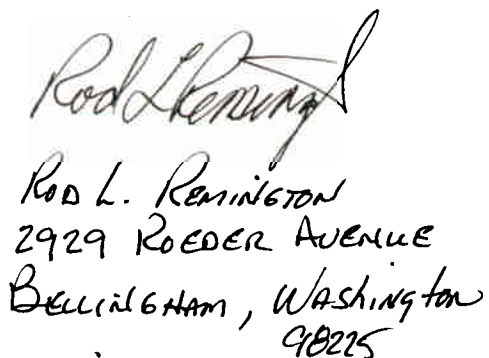 Rod L Remington
ROD L. REMINGTON
2929 ROEDER AVENUE
BELLINGHAM, WASHINGTON
98225